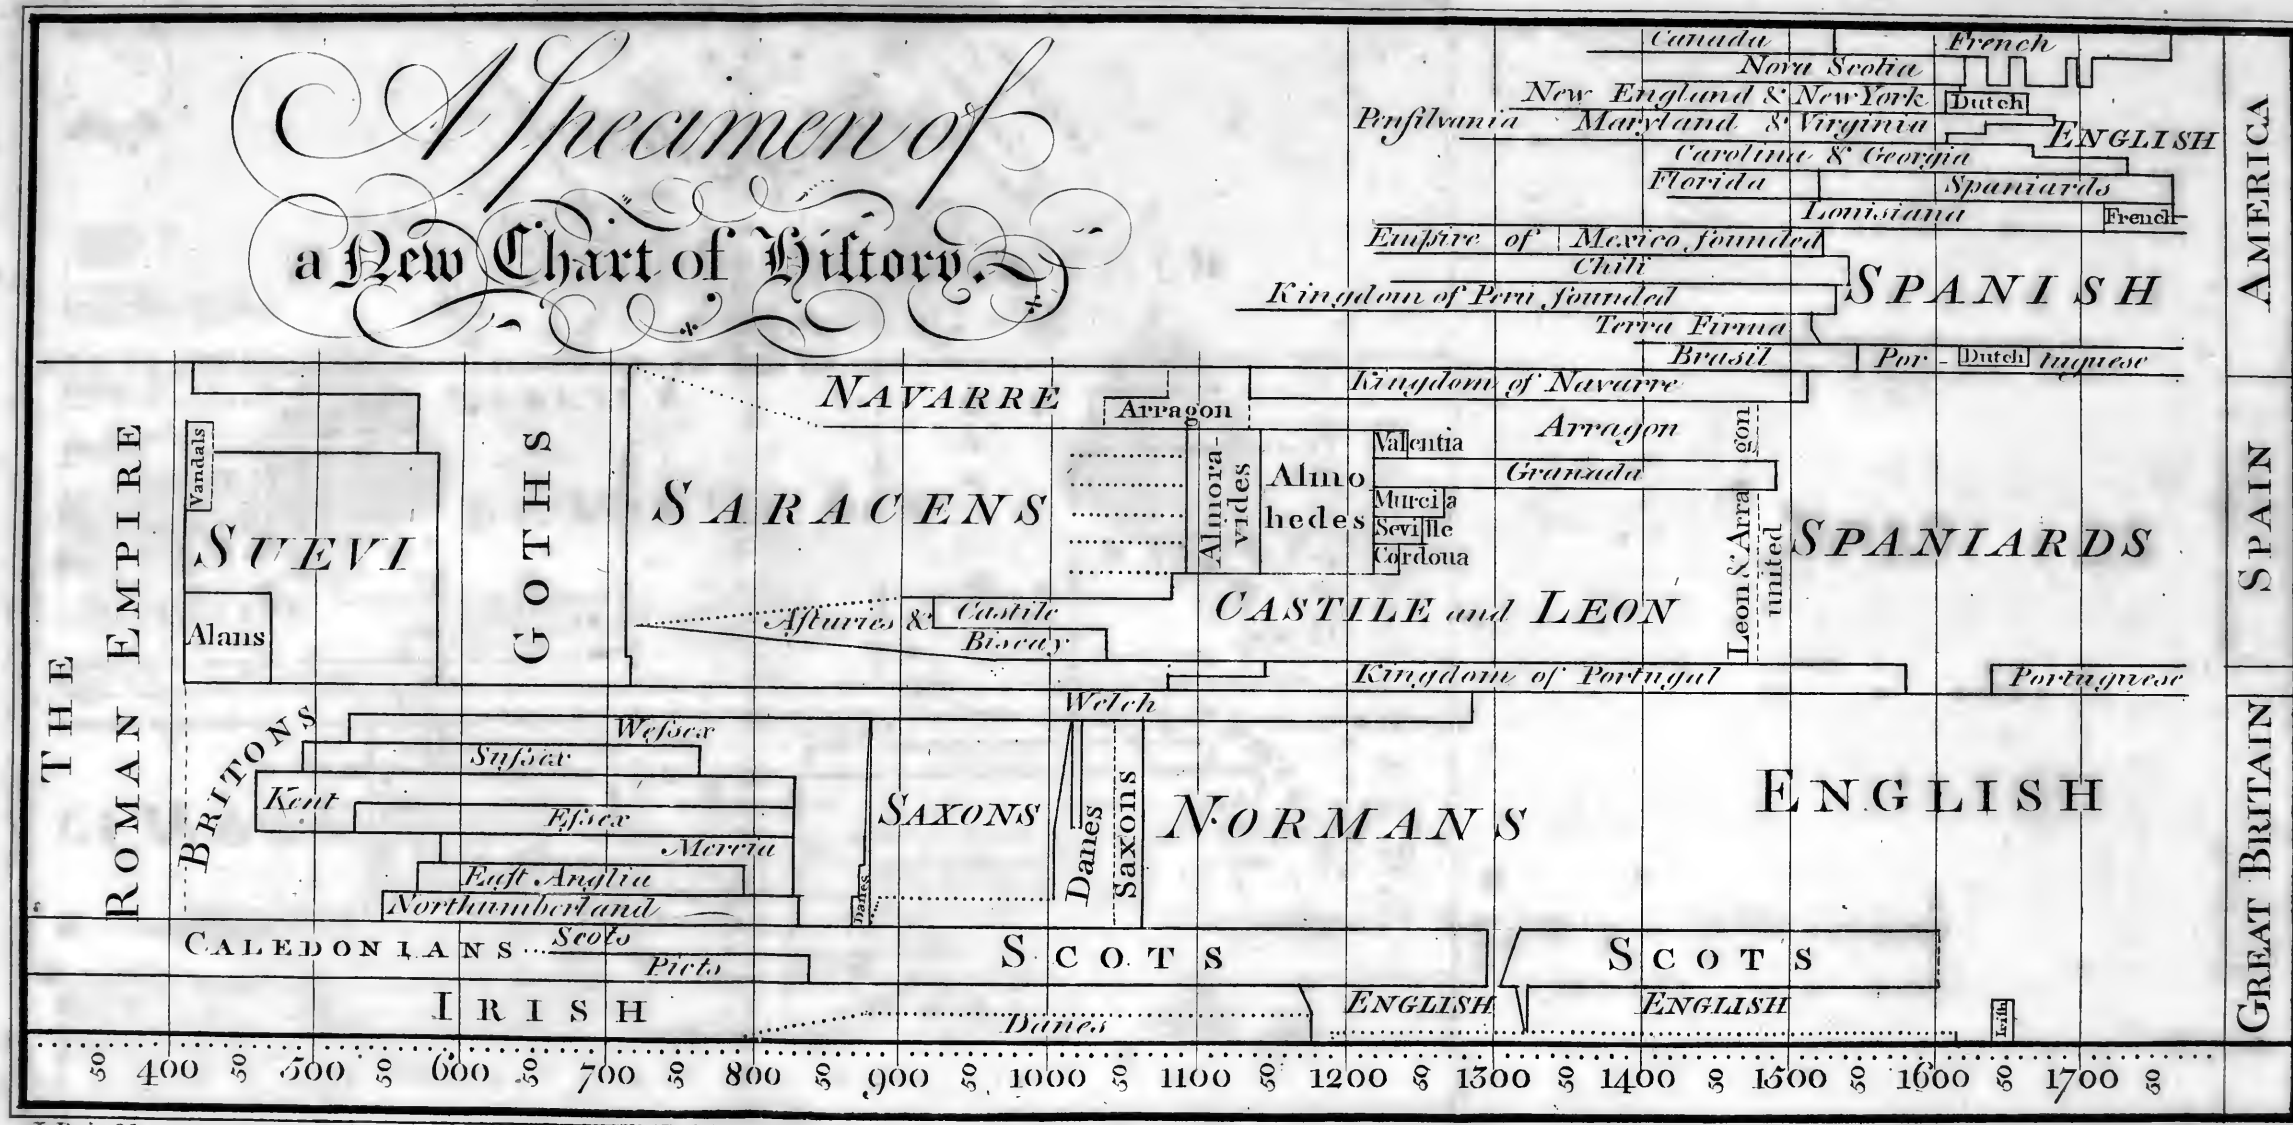 A Specimen of
a New Chart of Hiſtory.
Canada French
Nova Scotia
New England & New York Dutch
Penſilvania Maryland & Virginia ENGLISH
Carolina & Georgia
Florida Spaniards
Louisiana French
Empire of Mexico founded
Chili SPANISH
Kingdom of Peru founded
Terra Firma
Brasil Por- Dutch tuguese
AMERICA
THE
ROMAN EMPIRE
Vandals
SUEVI
Alans
GOTHS
NAVARRE
Arragon
Kingdom of Navarre
SARACENS
Almora-
vides
Almo
hedes
Valentia
Arragon
Granada
Murcia
Seville
Cordoua
Leon & Arra gon
united
SPANIARDS
Aſturies & Castile
Biscay
CASTILE and LEON
Kingdom of Portugal
Portuguese
SPAIN
BRITONS
Welch
Weſsex
Suſsex
Kent
Eſsex
Mercia
Eaſt Anglia
Northumberland
Danes
SAXONS
Danes
Saxons
NORMANS
ENGLISH
CALEDONIANS
Scots
Picts
SCOTS
SCOTS
IRISH
Danes
ENGLISH
ENGLISH
Irish
GREAT BRITAIN
50 400 50 500 50 600 50 700 50 800 50 900 50 1000 50 1100 50 1200 50 1300 50 1400 50 1500 50 1600 50 1700 50